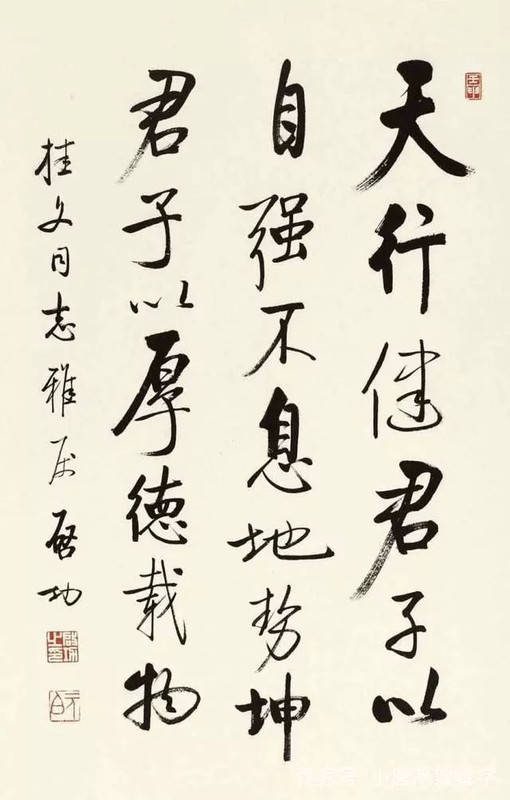 天行健君子以
自强不息地势坤
君子以厚德载物
桂文同志雅属 启功
启功之印